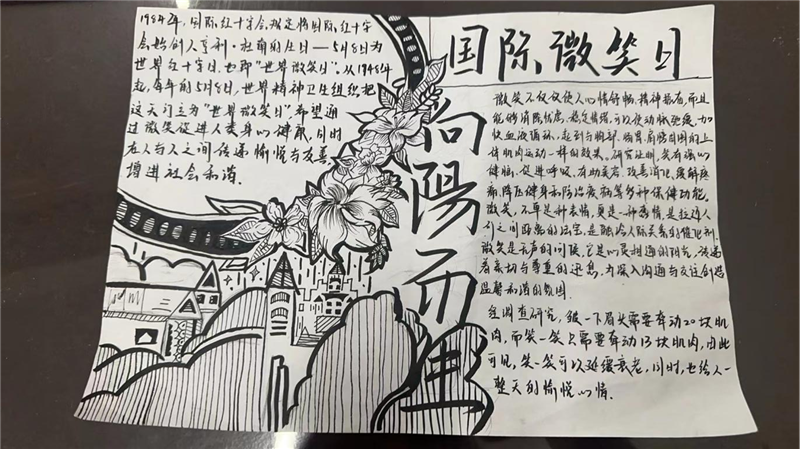 国际微笑日
向陽而生
1984年，国际红十字会规定将国际红十字
会始创人亨利·杜南的生日—5月8日为
世界红十字日，也即“世界微笑日”。从1948年
起，每年的5月8日，世界精神卫生组织把
这天订立为“世界微笑日”，希望通
过微笑促进人类身心健康，同时
在人与人之间传递愉悦与友善，
增进社会和谐．
微笑不仅仅使人心情舒畅，精神振奋，而且
能够消除忧虑，稳定情绪，可以使动脉弛缓，加
快血液循环，起到与胸部、肠胃、肩膀周围的上
体肌肉运动一样的效果，研究证明，笑有强心
健脑，促进呼吸，有助美容，改善消化，缓解疼
痛，降压健身和防治疾病等多种保健功能。
微笑，不单是种表情，更是一种感情，是拉近人
们之间距离的法宝，是融洽人际关系的催化剂．
微笑是无声的问候，它是心灵相通的阳光，传递
着亲切与尊重的讯息，为深入沟通与交往创造
温馨和谐的氛围．
经调查研究，皱一下眉头需要牵动20块肌
肉，而笑一笑只需要牵动13块肌肉，由此
可见，笑一笑可以延缓衰老，同时，也给人一
整天的愉悦心情．